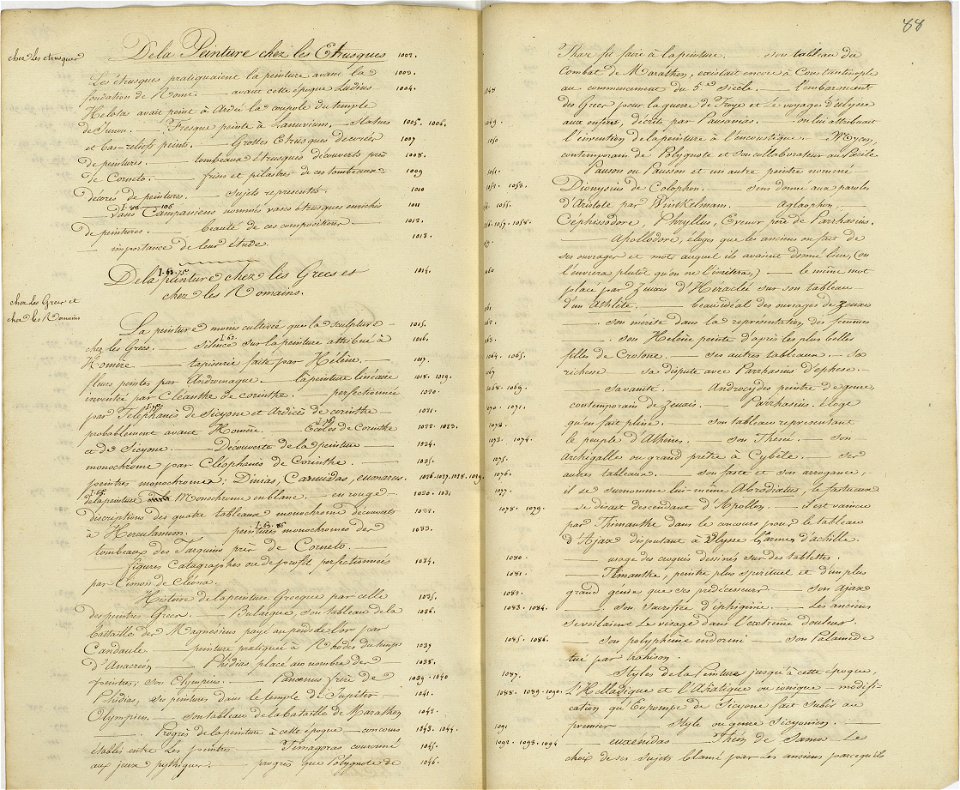 chez les étrusques
De la Peinture chez les Etrusques 1002.
Les étrusques pratiquaient la peinture avant la 1003.
fondation de Rome. avant cette époque Ludius 1004.
Helotas avait peint à Ardée la coupole du temple
de Junon. — Fresque peinte à Lanuvium — Statues 1005. 1006.
et bas-reliefs peints. — Grottes Etrusques décorées 1007
de peintures. — tombeaux étrusques découverts près 1008.
de Corneto. — frises et pilastres de ces tombeaux 1009
décorés de peintures. — Sujets représentés. 1010
— Vases Campaniens nommés vases étrusques enrichis 1011
de peintures. — beauté de ces compositions — 1012.
importance de leur étude. 1013.
De la peinture chez les Grecs et 1014.
chez les Romains.
chez les Grecs et
chez les Romains
La peinture moins cultivée que la sculpture — 1015.
chez les Grecs. — Silence sur la peinture attribué à 1016.
Homère — tapisserie faite par Hélène. — 1017.
fleurs peintes par Andromaque. — la peinture linéaire 1018. 1019.
inventée par Cléanthe de corinthe. — perfectionnée 1020.
par Téléphanès de Sicyone et Ardicès de corinthe — 1021.
probablement avant Homère. — Ecoles de Corinthe 1022. 1023.
et de Sicyone. — Découverte de la peinture — 1024.
monochrome par Cléophante de Corinthe. — 1025.
peintres monochromes; Dinias, Carmidas, eumarus 1026. 1027. 1028. 1029.
de la peinture Monochrome en blanc. — en rouge — 1030. 103.
Descriptions des quatre tableaux monochromes découverts
à Herculanum. — peintures monochromes des 1033.
tombeaux des Tarquins près de Corneto.
figures Catagraphes ou de profil perfectionnées 1034.
par Cimon de Cléona.
Histoire de la peinture Grecque par celle 1035.
des peintres Grecs. — Bularque, son tableau de la 1036.
bataille des Magnésiens payé au poids de l'or par
Candaule. — peinture pratiquée à Rhodes du temps 1037
d'Anacréon — Phidias placé au nombre des 1038.
peintres, son Olympius. — Panœnus frère de 1039. 1040
Phidias, ses peintures dans le temple de Jupiter — 1041.
Olympien. — son tableau de la bataille de Marathon 1042.
— Progrès de la peinture à cette époque — concours 1043. 1044.
établis entre les peintres — Timagoras couronné 1045.
aux jeux pythiques. — progrès que Polygnote de 1046.
88
Thase fit faire à la peinture. son tableau du
Combat de Marathon, existait encore à Constantinople
au commencement du 5.e Siècle. — l'embarquement
des Grecs pour la guerre de Troye et le voyage d'ulysse
aux enfers, décrits par Pausanias. — on lui attribuait
l'invention de la peinture à l'encaustique. — Mycon,
contemporain de Polygnote et son collaborateur au Pœcile.
Pauson ou Pausson et un autre peintre nommé
Dionysius de Colophon. — sens donné aux paroles
d'Aristote par Winkelmann. — Aglaophon,
Cephissodore, Phryllus, Evenor père de Parrhasius.
— Apollodore, éloges que les anciens ont fait de
ses ouvrages et mot auquel ils avaient donné lieu, (on
l'enviera plutôt qu'on ne l'imitera,) — le même mot
placé par Zeuxis d'Héraclée sur son tableau
d'un Athlète. — beau idéal des ouvrages de Zeuxis
— son mérite dans la représentation des femmes
— son Helène peinte d'après les plus belles
filles de Crotone. — ses autres tableaux. — sa 1064. 1065.
richesse — sa dispute avec Parrhasius d'ephèse.
— sa vanité. — Androcydes peintre de genre, 1068. 1069.
contemporain de Zeuxis. — Parrhasius, éloge
qu'en fait pline. — son tableau représentant
le peuple d'Athènes. — son Thésée. — son 1073. 1074.
Archigalle ou grand prêtre de Cybèle. — ses 1075.
autres tableaux. — son faste et son arrogance, 1076.
il se surnomme lui-même Abrodiætus, le fastueux 1077.
se disait descendant d'Apollon. — il est vaincu 1078. 1079.
par Timanthe dans le concours pour le tableau
d'Ajax disputant à Ulysse l'armes d'achille.
— usage des croquis dessinés sur des tablettes. 1080.
— Timanthe, peintre plus spirituel et d'un plus 1081.
grand génie que ses prédécesseurs — son Ajax
— son Sacrifice d'iphigénie. — Les anciens 1083. 1084.
se voilaient le visage dans l'extrême douleur.
— son polyphème endormi — son Palamède 1085. 1086.
tué par trahison.
— Styles de la Peinture jusqu'à cette époque, 1087.
L'Helladique et l'Asiatique ou ionique — modifi- 1088. 1089. 1090.
cation qu'Eupompe de Sicyone fait subir au
premier — Style ou genre Sicyonien. — 1091
— euxenidas — Théon de Samos le 1092. 1093. 1094
choix de ses sujets blâmé par les anciens parcequ'ils